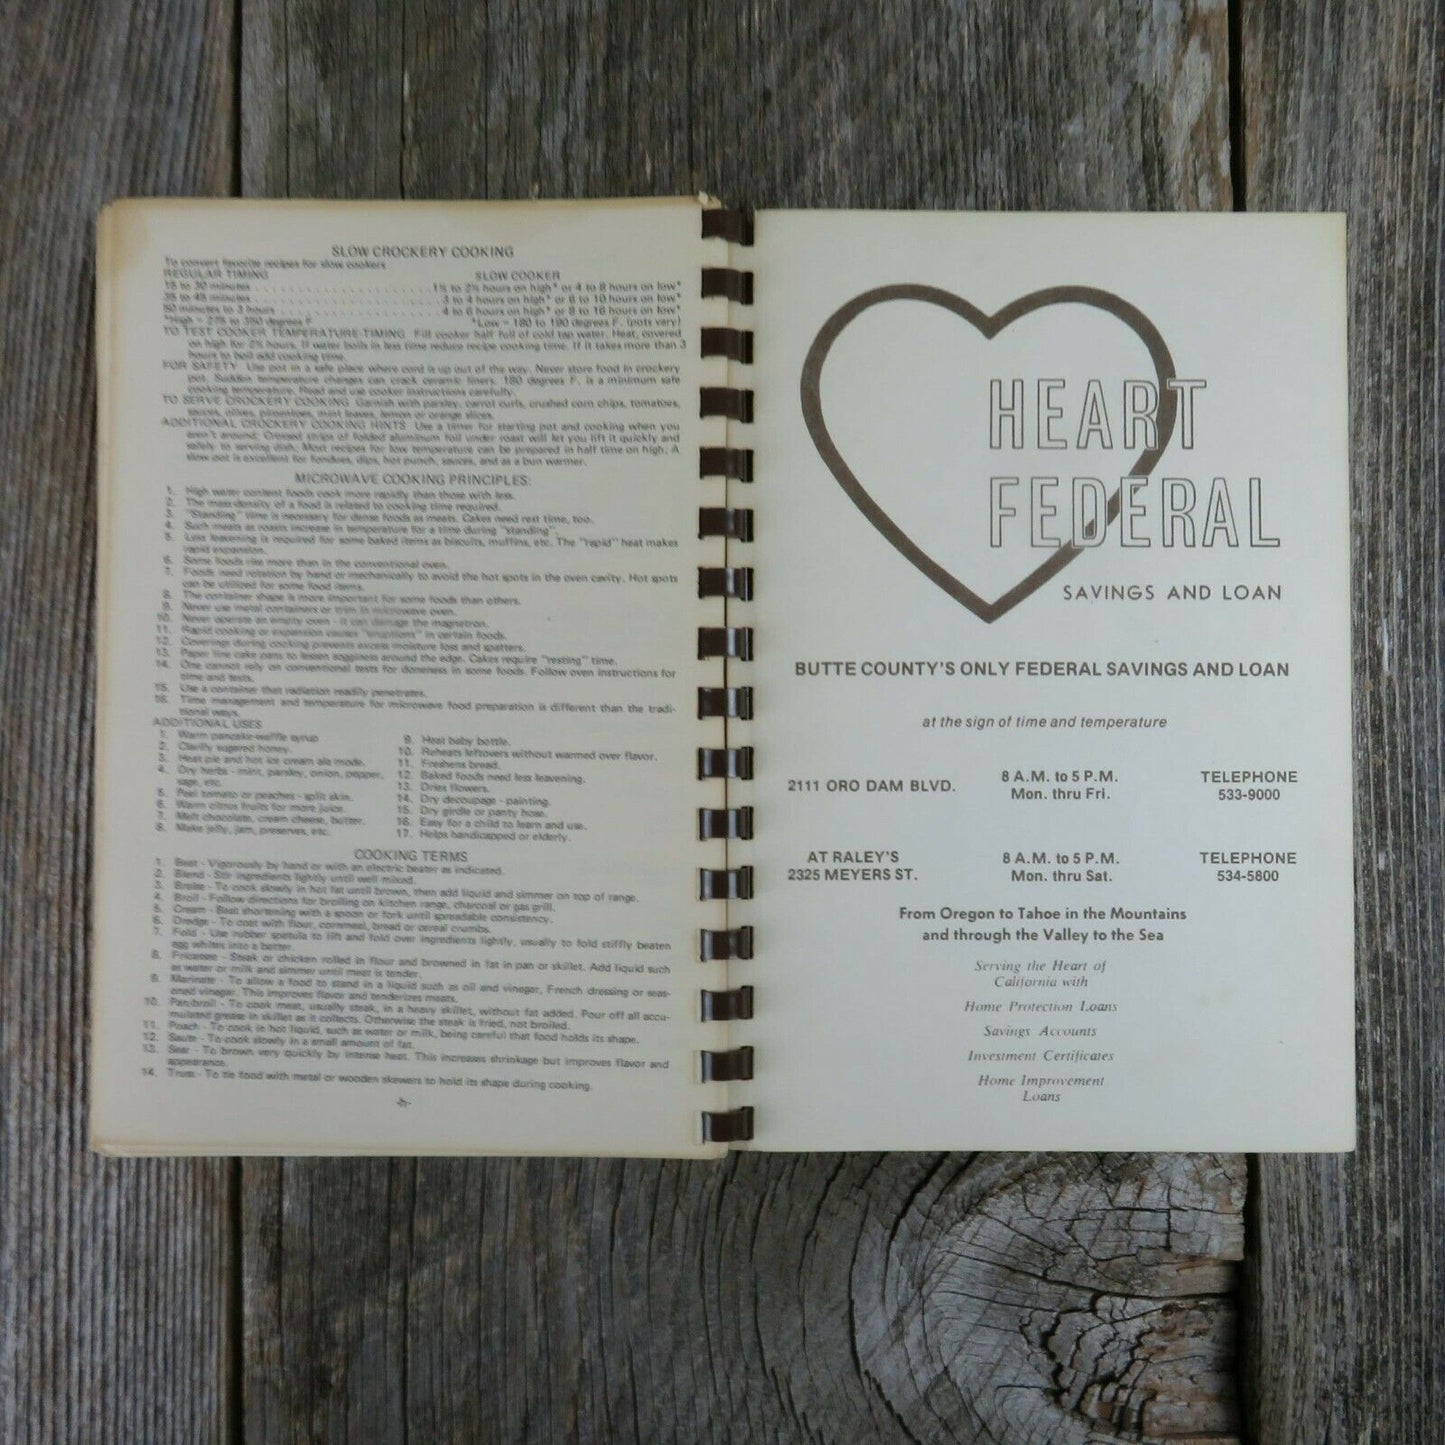 SLOW CROCKERY COOKING
To convert favorite recipes for slow cookers
REGULAR TIMING SLOW COOKER
15 to 30 minutes . . . . . . . . . . . . . . . . . . . 1½ to 2½ hours on high* or 4 to 8 hours on low*
35 to 45 minutes . . . . . . . . . . . . . . . . . . . 3 to 4 hours on high* or 6 to 10 hours on low*
50 minutes to 3 hours . . . . . . . . . . . . . . . . . 4 to 6 hours on high* or 8 to 16 hours on low*
*High = 275 to 350 degrees F. *Low = 180 to 190 degrees F. (pots vary)
TO TEST COOKER TEMPERATURE-TIMING Fill cooker half full of cold tap water. Heat, covered
on high for 2½ hours. If water boils in less time reduce recipe cooking time. If it takes more than 3
hours to boil add cooking time.
FOR SAFETY Use pot in a safe place where cord is up out of the way. Never store food in crockery
pot. Sudden temperature changes can crack ceramic liners. 180 degrees F. is a minimum safe
cooking temperature. Read and use cooker instructions carefully.
TO SERVE CROCKERY COOKING Garnish with parsley, carrot curls, crushed corn chips, tomatoes,
sauces, olives, pimentoes, mint leaves, lemon or orange slices.
ADDITIONAL CROCKERY COOKING HINTS Use a timer for starting pot and cooking when you
aren't around. Crossed strips of folded aluminum foil under roast will let you lift it quickly and
safely to serving dish. Most recipes for low temperature can be prepared in half time on high. A
slow pot is excellent for fondues, dips, hot punch, sauces, and as a bun warmer.
MICROWAVE COOKING PRINCIPLES:
1. High water content foods cook more rapidly than those with less.
2. The mass-density of a food is related to cooking time required.
3. "Standing" time is necessary for dense foods as meats. Cakes need rest time, too.
4. Such meats as roasts increase in temperature for a time during "standing".
5. Less leavening is required for some baked items as biscuits, muffins, etc. The "rapid" heat makes
rapid expansion.
6. Some foods rise more than in the conventional oven.
7. Foods need rotation by hand or mechanically to avoid the hot spots in the oven cavity. Hot spots
can be utilized for some food items.
8. The container shape is more important for some foods than others.
9. Never use metal containers or trim in microwave oven.
10. Never operate an empty oven - it can damage the magnetron.
11. Rapid cooking or expansion causes "eruptions" in certain foods.
12. Coverings during cooking prevents excess moisture loss and spatters.
13. Paper line cake pans to lessen sogginess around the edge. Cakes require "resting" time.
14. One cannot rely on conventional tests for doneness in some foods. Follow oven instructions for
time and tests.
15. Use a container that radiation readily penetrates.
16. Time management and temperature for microwave food preparation is different than the tradi-
tional ways.
ADDITIONAL USES
1. Warm pancake-waffle syrup
2. Clarify sugared honey.
3. Heat pie and hot ice cream ala mode.
4. Dry herbs - mint, parsley, onion, pepper,
sage, etc.
5. Peel tomato or peaches - split skin.
6. Warm citrus fruits for more juice.
7. Melt chocolate, cream cheese, butter.
8. Make jelly, jam, preserves, etc.
9. Heat baby bottle.
10. Reheats leftovers without warmed over flavor.
11. Freshens bread.
12. Baked foods need less leavening.
13. Dries flowers.
14. Dry decoupage - painting.
15. Dry girdle or panty hose.
16. Easy for a child to learn and use.
17. Helps handicapped or elderly.
COOKING TERMS
1. Beat - Vigorously by hand or with an electric beater as indicated.
2. Blend - Stir ingredients lightly until well mixed.
3. Braise - To cook slowly in hot fat until brown, then add liquid and simmer on top of range.
4. Broil - Follow directions for broiling on kitchen range, charcoal or gas grill.
5. Cream - Beat shortening with a spoon or fork until spreadable consistency.
6. Dredge - To coat with flour, cornmeal, bread or cereal crumbs.
7. Fold - Use rubber spatula to lift and fold over ingredients lightly, usually to fold stiffly beaten
egg whites into a batter.
8. Fricassee - Steak or chicken rolled in flour and browned in fat in pan or skillet. Add liquid such
as water or milk and simmer until meat is tender.
9. Marinate - To allow a food to stand in a liquid such as oil and vinegar, French dressing or seas-
oned vinegar. This improves flavor and tenderizes meats.
10. Panbroil - To cook meat, usually steak, in a heavy skillet, without fat added. Pour off all accu-
mulated grease in skillet as it collects. Otherwise the steak is fried, not broiled.
11. Poach - To cook in hot liquid, such as water or milk, being careful that food holds its shape.
12. Saute - To cook slowly in a small amount of fat.
13. Sear - To brown very quickly by intense heat. This increases shrinkage but improves flavor and
appearance.
14. Truss - To tie food with metal or wooden skewers to hold its shape during cooking.
HEART
FEDERAL
SAVINGS AND LOAN
BUTTE COUNTY'S ONLY FEDERAL SAVINGS AND LOAN
at the sign of time and temperature
2111 ORO DAM BLVD. 8 A.M. to 5 P.M. TELEPHONE
Mon. thru Fri. 533-9000
AT RALEY'S 8 A.M. to 5 P.M. TELEPHONE
2325 MEYERS ST. Mon. thru Sat. 534-5800
From Oregon to Tahoe in the Mountains
and through the Valley to the Sea
Serving the Heart of
California with
Home Protection Loans
Savings Accounts
Investment Certificates
Home Improvement
Loans